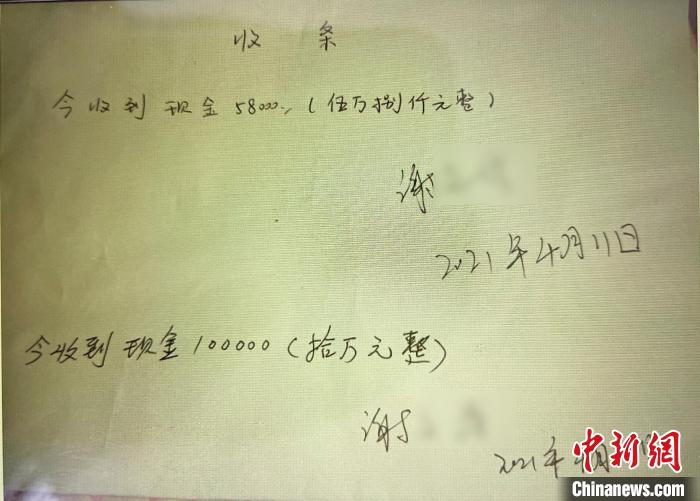 收 条
今收到现金58000.(伍万捌仟元整)
谢
2021年4月11日
今收到现金100000(拾万元整)
谢
2021年 月
中新网
Chinanews.com